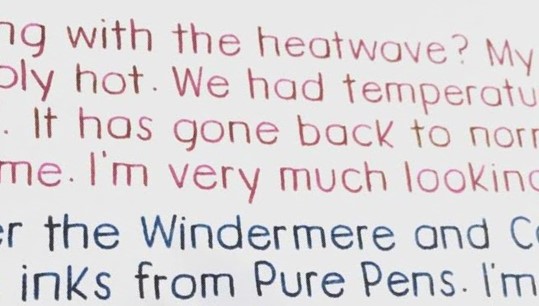 ng with the heatwave? My
bly hot. We had temperatu
. It has gone back to norm
me. I'm very much looking
er the Windermere and Co
inks from Pure Pens. I'm